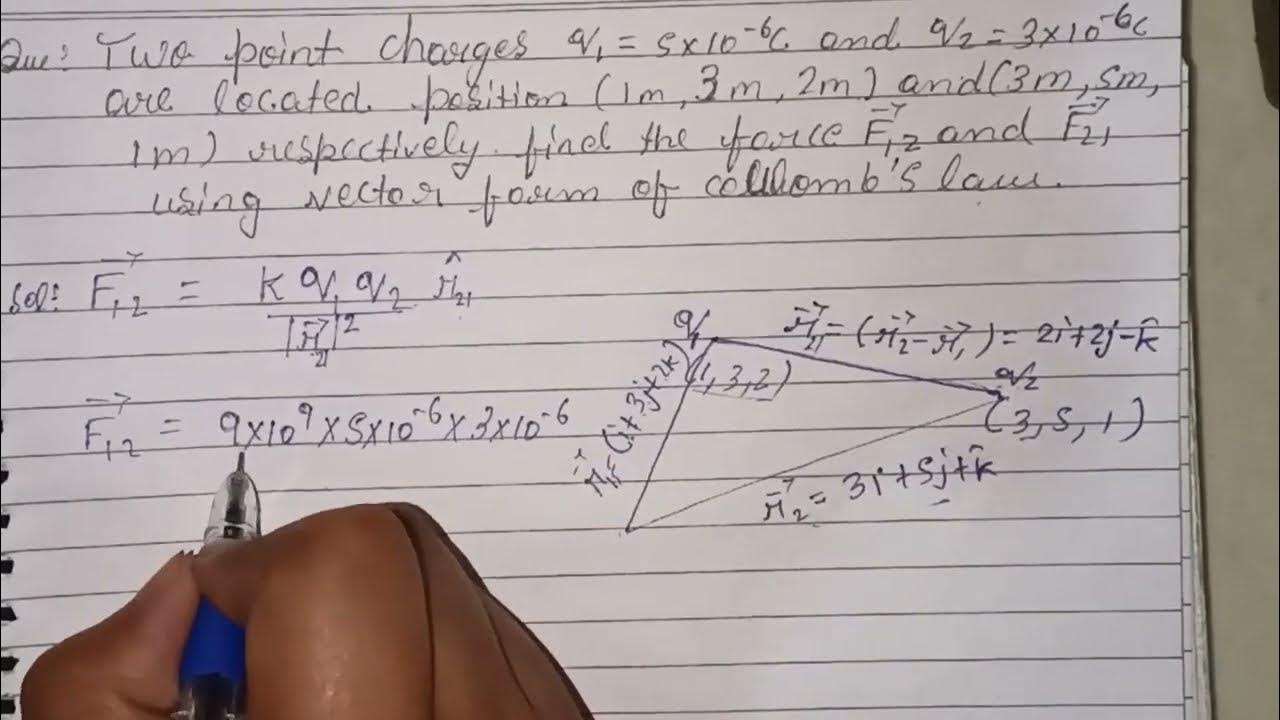 Que: Two point charges q₁ = 5×10⁻⁶C and q₂ = 3×10⁻⁶C
are located position (1m, 3m, 2m) and (3m, 5m,
1m) respectively. find the force F⃗₁₂ and F⃗₂₁
using vector form of coulomb's law.
Sol: F⃗₁₂ = k q₁ q₂ r̂₂₁
|r⃗₂₁|²
q₁ r⃗₂₁ = (r⃗₂ - r⃗₁) = 2i + 2j - k̂
(1, 3, 2) q₂
(3, 5, 1)
(i + 3j + 2k)
F⃗₁₂ = 9×10⁹ × 5×10⁻⁶ × 3×10⁻⁶
r⃗₂ = 3i + 5j + k̂